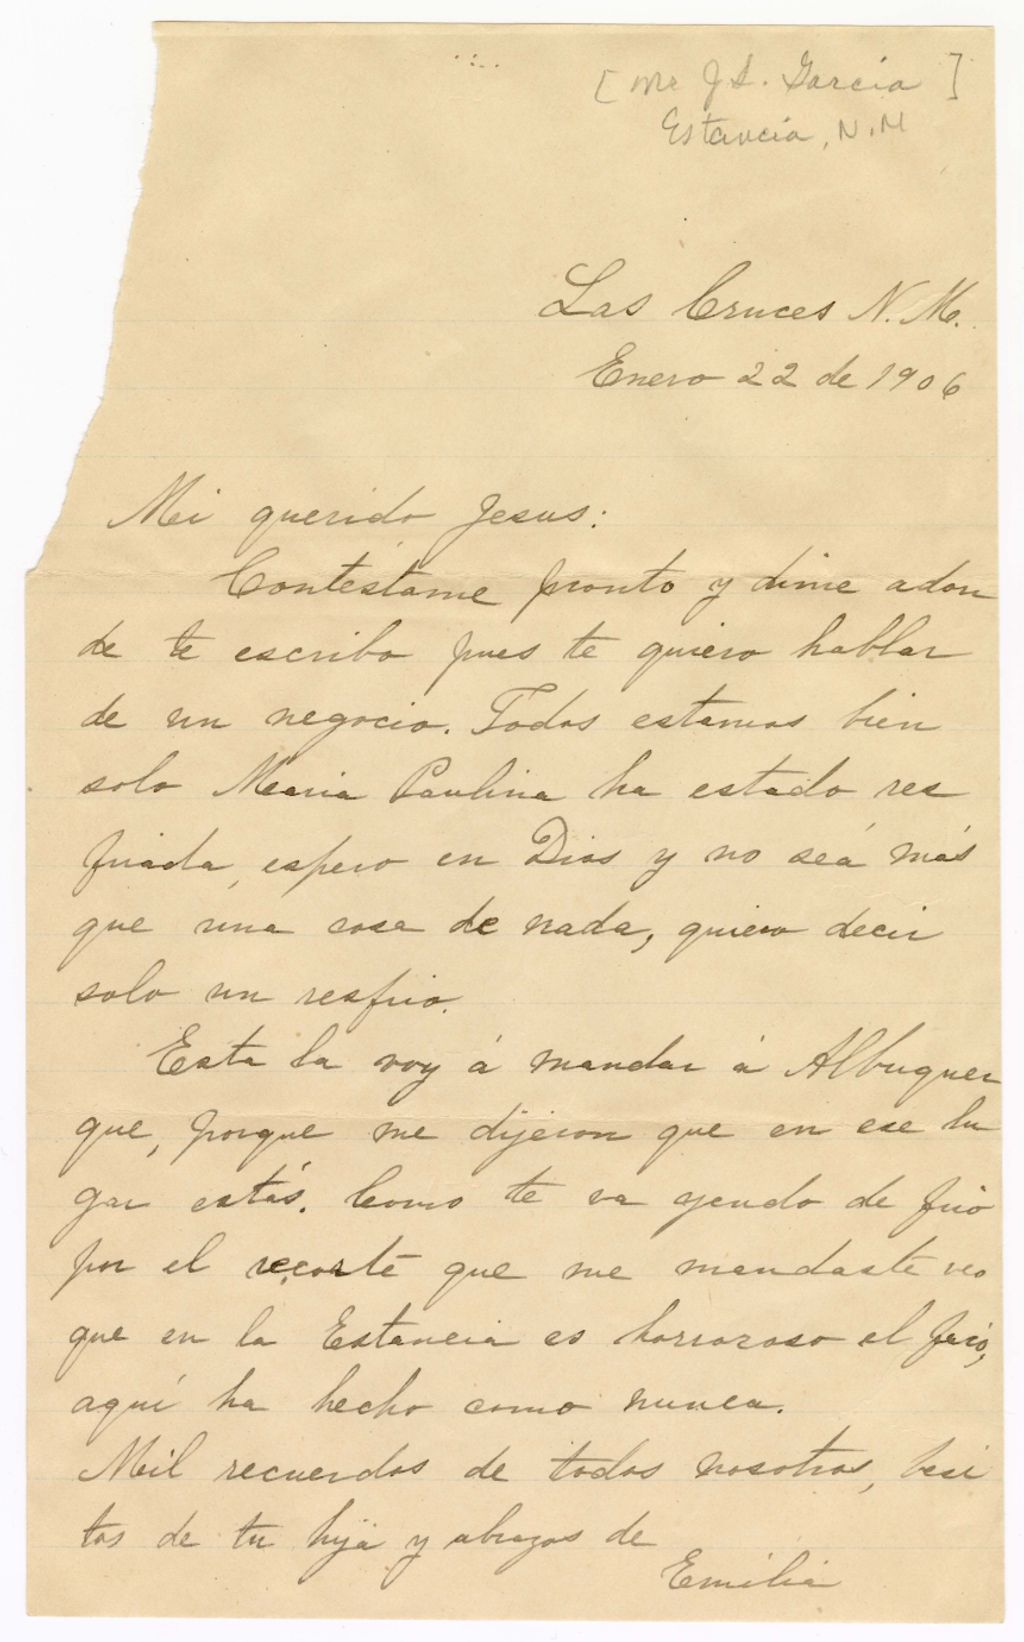 [Mr J. S. Garcia]
Estancia, N.M
Las Cruces N. M.
Enero 22 de 1906
Mi querido Jesus:
Contéstame pronto y dime adon
de te escribo pues te quiero hablar
de un negocio. Todos estamos bien
solo Maria Paulina ha estado res
friada, espero en Dios y no seá más
que una cosa de nada, quiero decir
solo un resfrio.
Esta la voy á mandar á Albuquer
que, porque me dijeron que en ese lu
gar estás. Como te va yendo de frio
por el recorte que me mandaste veo
que en la Estancia es horroroso el frio,
aquí ha hecho como nunca.
Mil recuerdos de todos nosotros, besi
tos de tu hija y abrazos de
Emilia